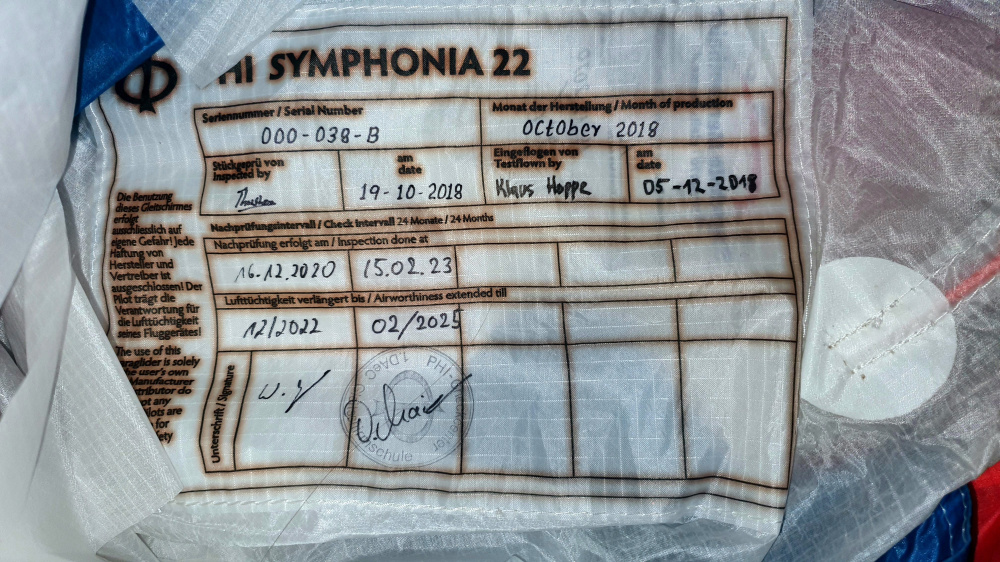 SYMPHONIA 22
Seriennummer / Serial Number
000-038-B
Monat der Herstellung / Month of production
OCtOber 2018
Stückgeprü von
Inspected by
am
date
19-10-2018
Eingeflogen von
Testflown by
Klaus Hoppe
am
date
05-12-2018
Nachprüfungsintervall / Check Intervall 24 Monate / 24 Months
Nachprüfung erfolgt am / Inspection done at
16.12.2020 15.02.23
Lufttüchtigkeit verlängert bis / Airworthiness extended till
12/2022 02/2025
Unterschrift / Signature
PHI
Die Benutzung
dieses Gleitschirmes
erfolgt
ausschliesslich auf
eigene Gefahr! Jede
Haftung von
Hersteller und
Vertreiber ist
ausgeschlossen! Der
Pilot trägt die
Verantwortung für
die Lufttüchtigkeit
seines Fluggerätes!
The use of this
is solely
user's own
are
for